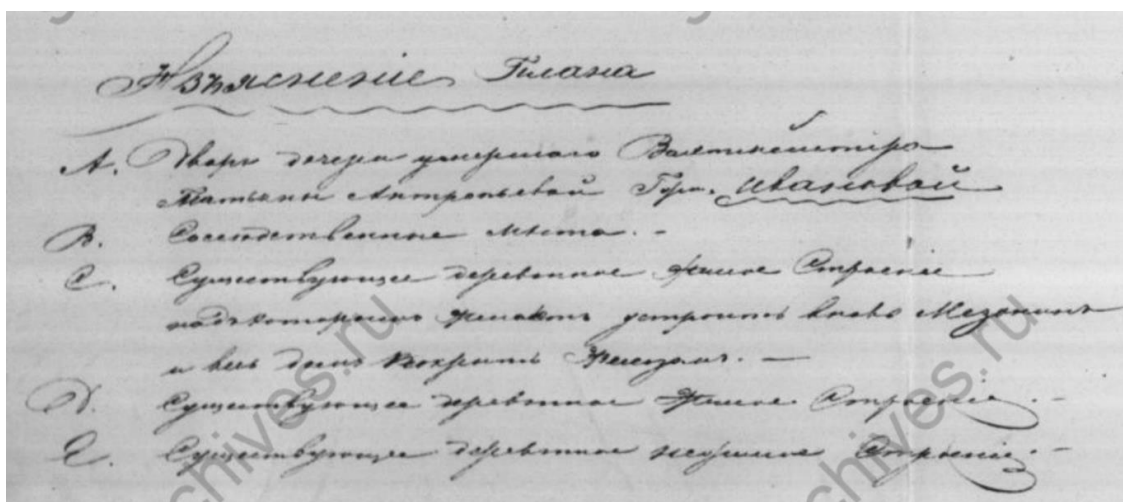 Изъясненіе Плана
А. Дворъ дочери умершаго Валтмейстера
Татьяны Антроповой Гуж. Ивановой
В. Соседственные места. -
С. Существующее деревянное жилое Строеніе
надъ которымъ желаютъ устроить вновь Мезонинъ
и весь домъ покрыть Железомъ. —
D. Существующее деревянное жилое Строеніе. -
Е. Существующее деревянное нежилое Строеніе. -
chives.ru
chives.ru